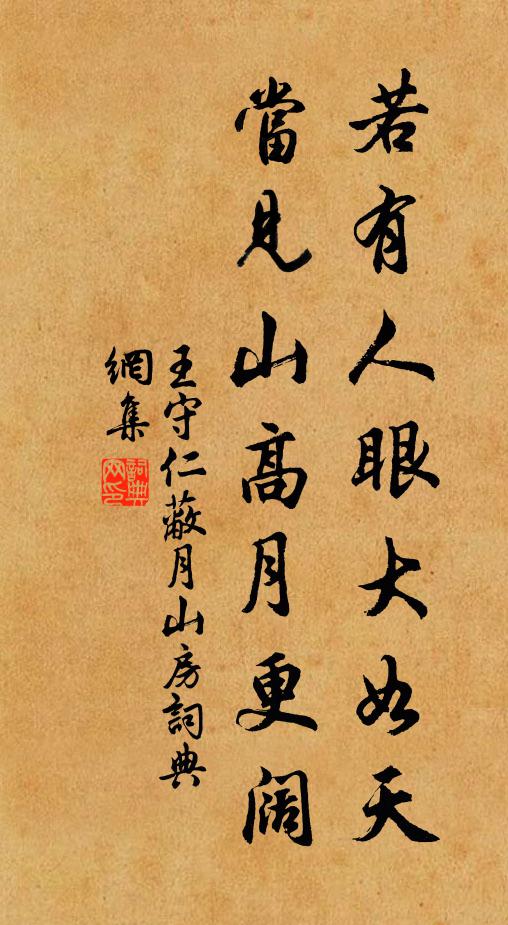 若有人眼大如天
當見山高月更阔
王守仁蔽月山房詞典
網集
詞典網印